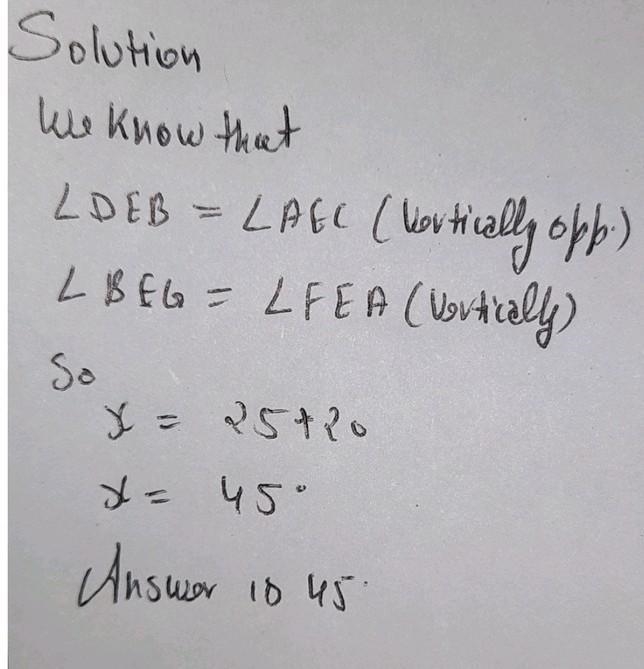 Solution
We know that
∠DEB = ∠AEC (Vertically opp.)
∠BEG = ∠FEA (Vertically)
So
x = 25+20
x = 45°
Answer is 45°